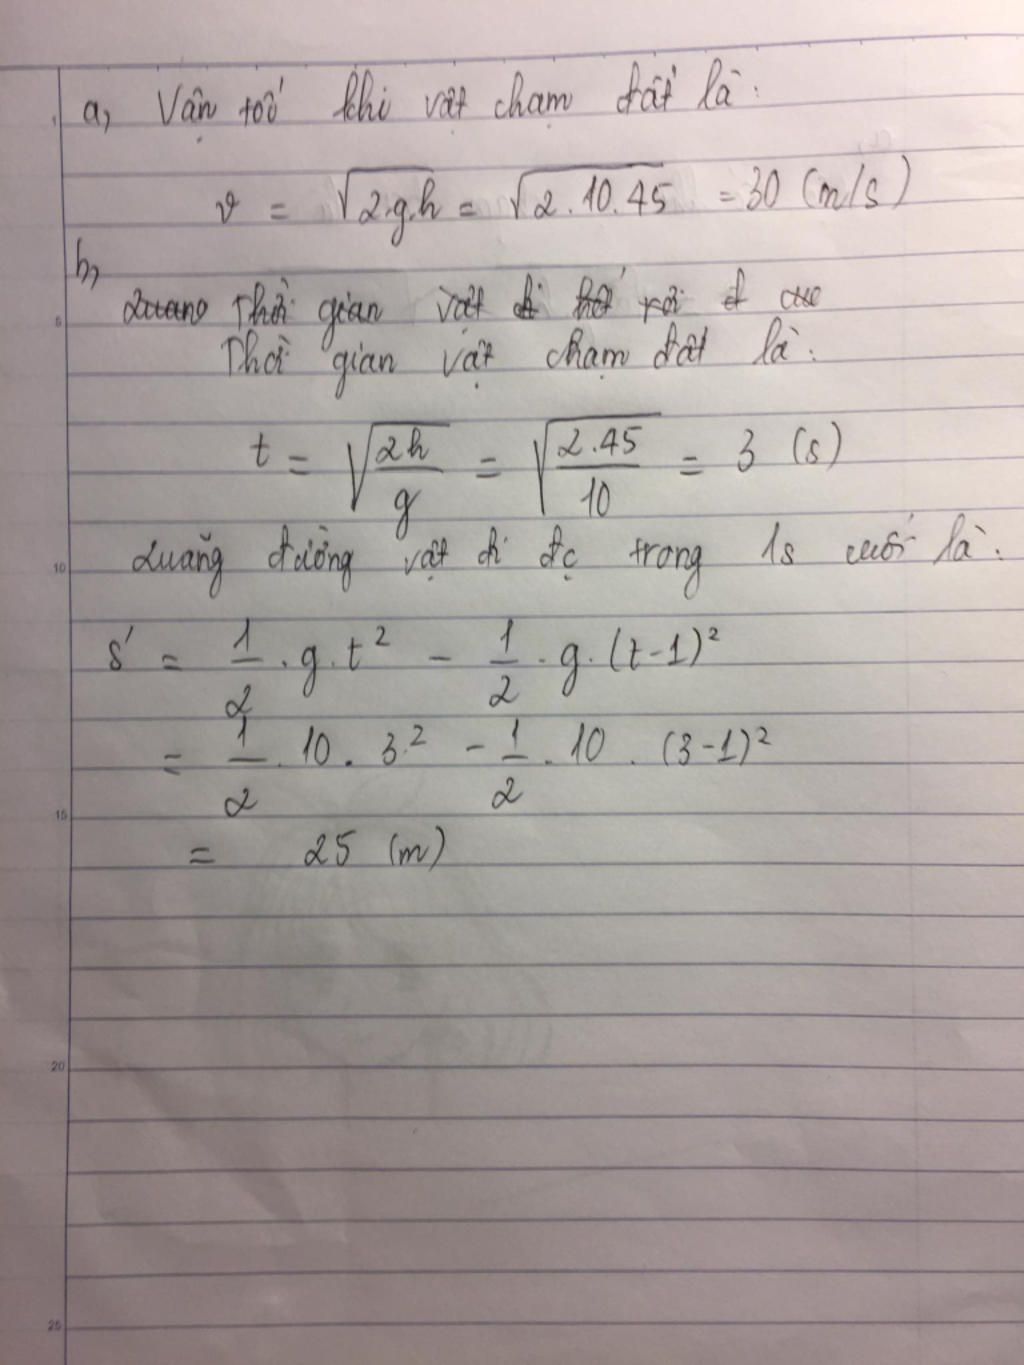 a, Vận tốc khi vật chạm đất là:
v = √2.g.h = √2.10.45 = 30 (m/s)
b,
Quang Thời gian vật đi rơi đ
Thời gian vật chạm đất là:
t = √2h/g = √2.45/10 = 3 (s)
Quãng đường vật đi đc trong 1s cuối là:
s' = 1/2 . g . t² - 1/2 . g . (t-1)²
= 1/2 . 10 . 3² - 1/2 . 10 . (3-1)²
= 25 (m)
5
10
15
20
25